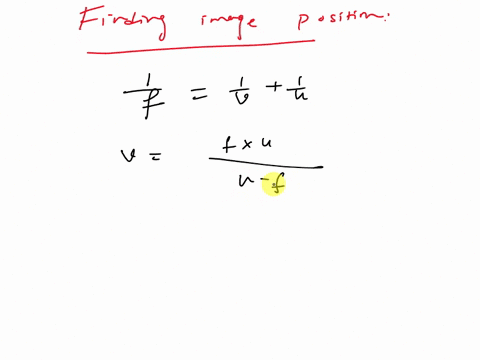 Finding image position:
1/f = 1/v + 1/u
v = f × u / u - f